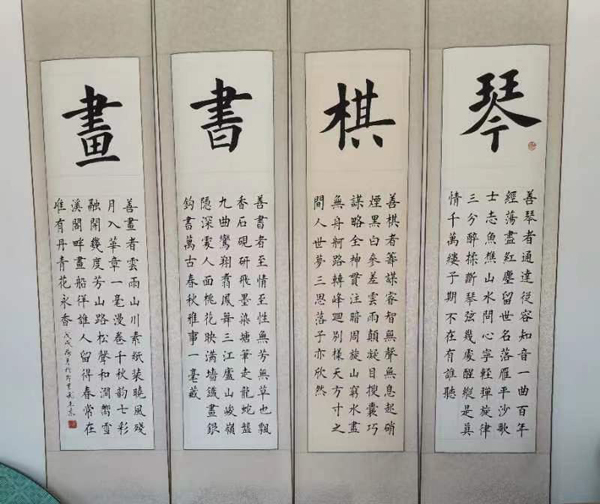 琴
善琴者通達從容知音一曲百年
經蕩盡紅塵留世名落雁平沙歌
士志魚樵山水問心寧輕彈旋律
三分醉揉斷琴弦幾處醒縱是真
情千萬縷子期不在有誰聽
棋
善棋者籌謀睿智無聲無息起硝
煙黑白參差雲雨顛凝目搜囊巧
謀略全神貫注暗周旋山窮水盡
無舟柯路轉峰廻別樣天方寸之
間人世夢三思落子亦欣然
書
善書者至情至性無芳無草也飄
香石硯研飛墨染塘筆走龍蛇盤
九曲鸞翔翥鳳舞三江廬山峻嶺
隨深蒙人面桃花映滿墻鐵畫銀
鈎書萬古春秋雅事一毫藏
畫
善畫者雲雨山川素紙裝曉風殘
月入華章一毫漫卷千秋韵七彩
融開幾度芳山路松聲和澗響雪
溪閣畔畫船徉誰人留得春常在
唯有丹青花永香